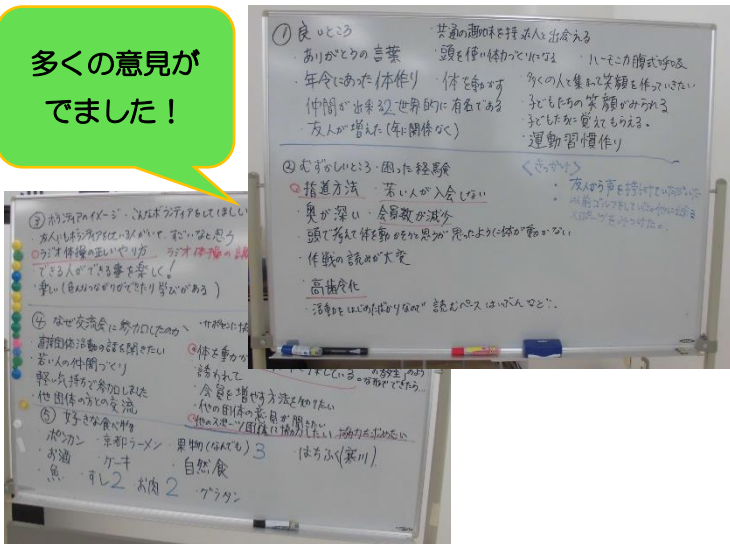 多くの意見が
でました！
① 良いところ
・ありがとうの言葉
・年令にあった体作り ・体を動かす
仲間が出来る2 世界的に有名である
・友人が増えた(年に関係なく)
・共通の趣味を持った人と出会える
・頭を使い体力づくりになる ・ハーモニカ腹式呼吸
・多くの人と集まって笑顔を作っていきたい
・子どもたちの笑顔がみられる
・子どもたちに覚えてもらえる。
・運動習慣作り
② むずかしいところ・困った経験
・指導方法 ・若い人が入会しない
・奥が深い ・会員数が減少
・頭で考えて体を動かそうと思うが思ったように体が動かない
・作戦の読みが大変
・高齢化
・活動をはじめたばかりなので
<きっかけ>
・友人から声を掛けて
③ ボランティアのイメージ・こんなボランティアをしてほしい
・友人もボランティアをしている人がいて、すごいなと思う
○ラジオ体操の正しいやり方 ラジオ体操の
・できる人ができる事を楽しく!
・楽しい(色んなつながりができたり学びがある)
④ なぜ交流会に参加したのか
・他団体活動の話を聞きたい
・若い人の仲間づくり
・軽い気持ちで参加しました
・他団体の方との交流
・体を動か
・誘われて
・会員を増やす方法を知りたい
・他の団体の意見が聞きたい
・他のスポーツ団体に協力したい 協力を求めたい
⑤ 好きな食べ物
・ポンカン ・京都ラーメン ・果物(なんでも)3 ・はちふく(寒川)
・お酒 ・ケーキ ・自然食
・魚 ・すし2 お肉2 ・グラタン